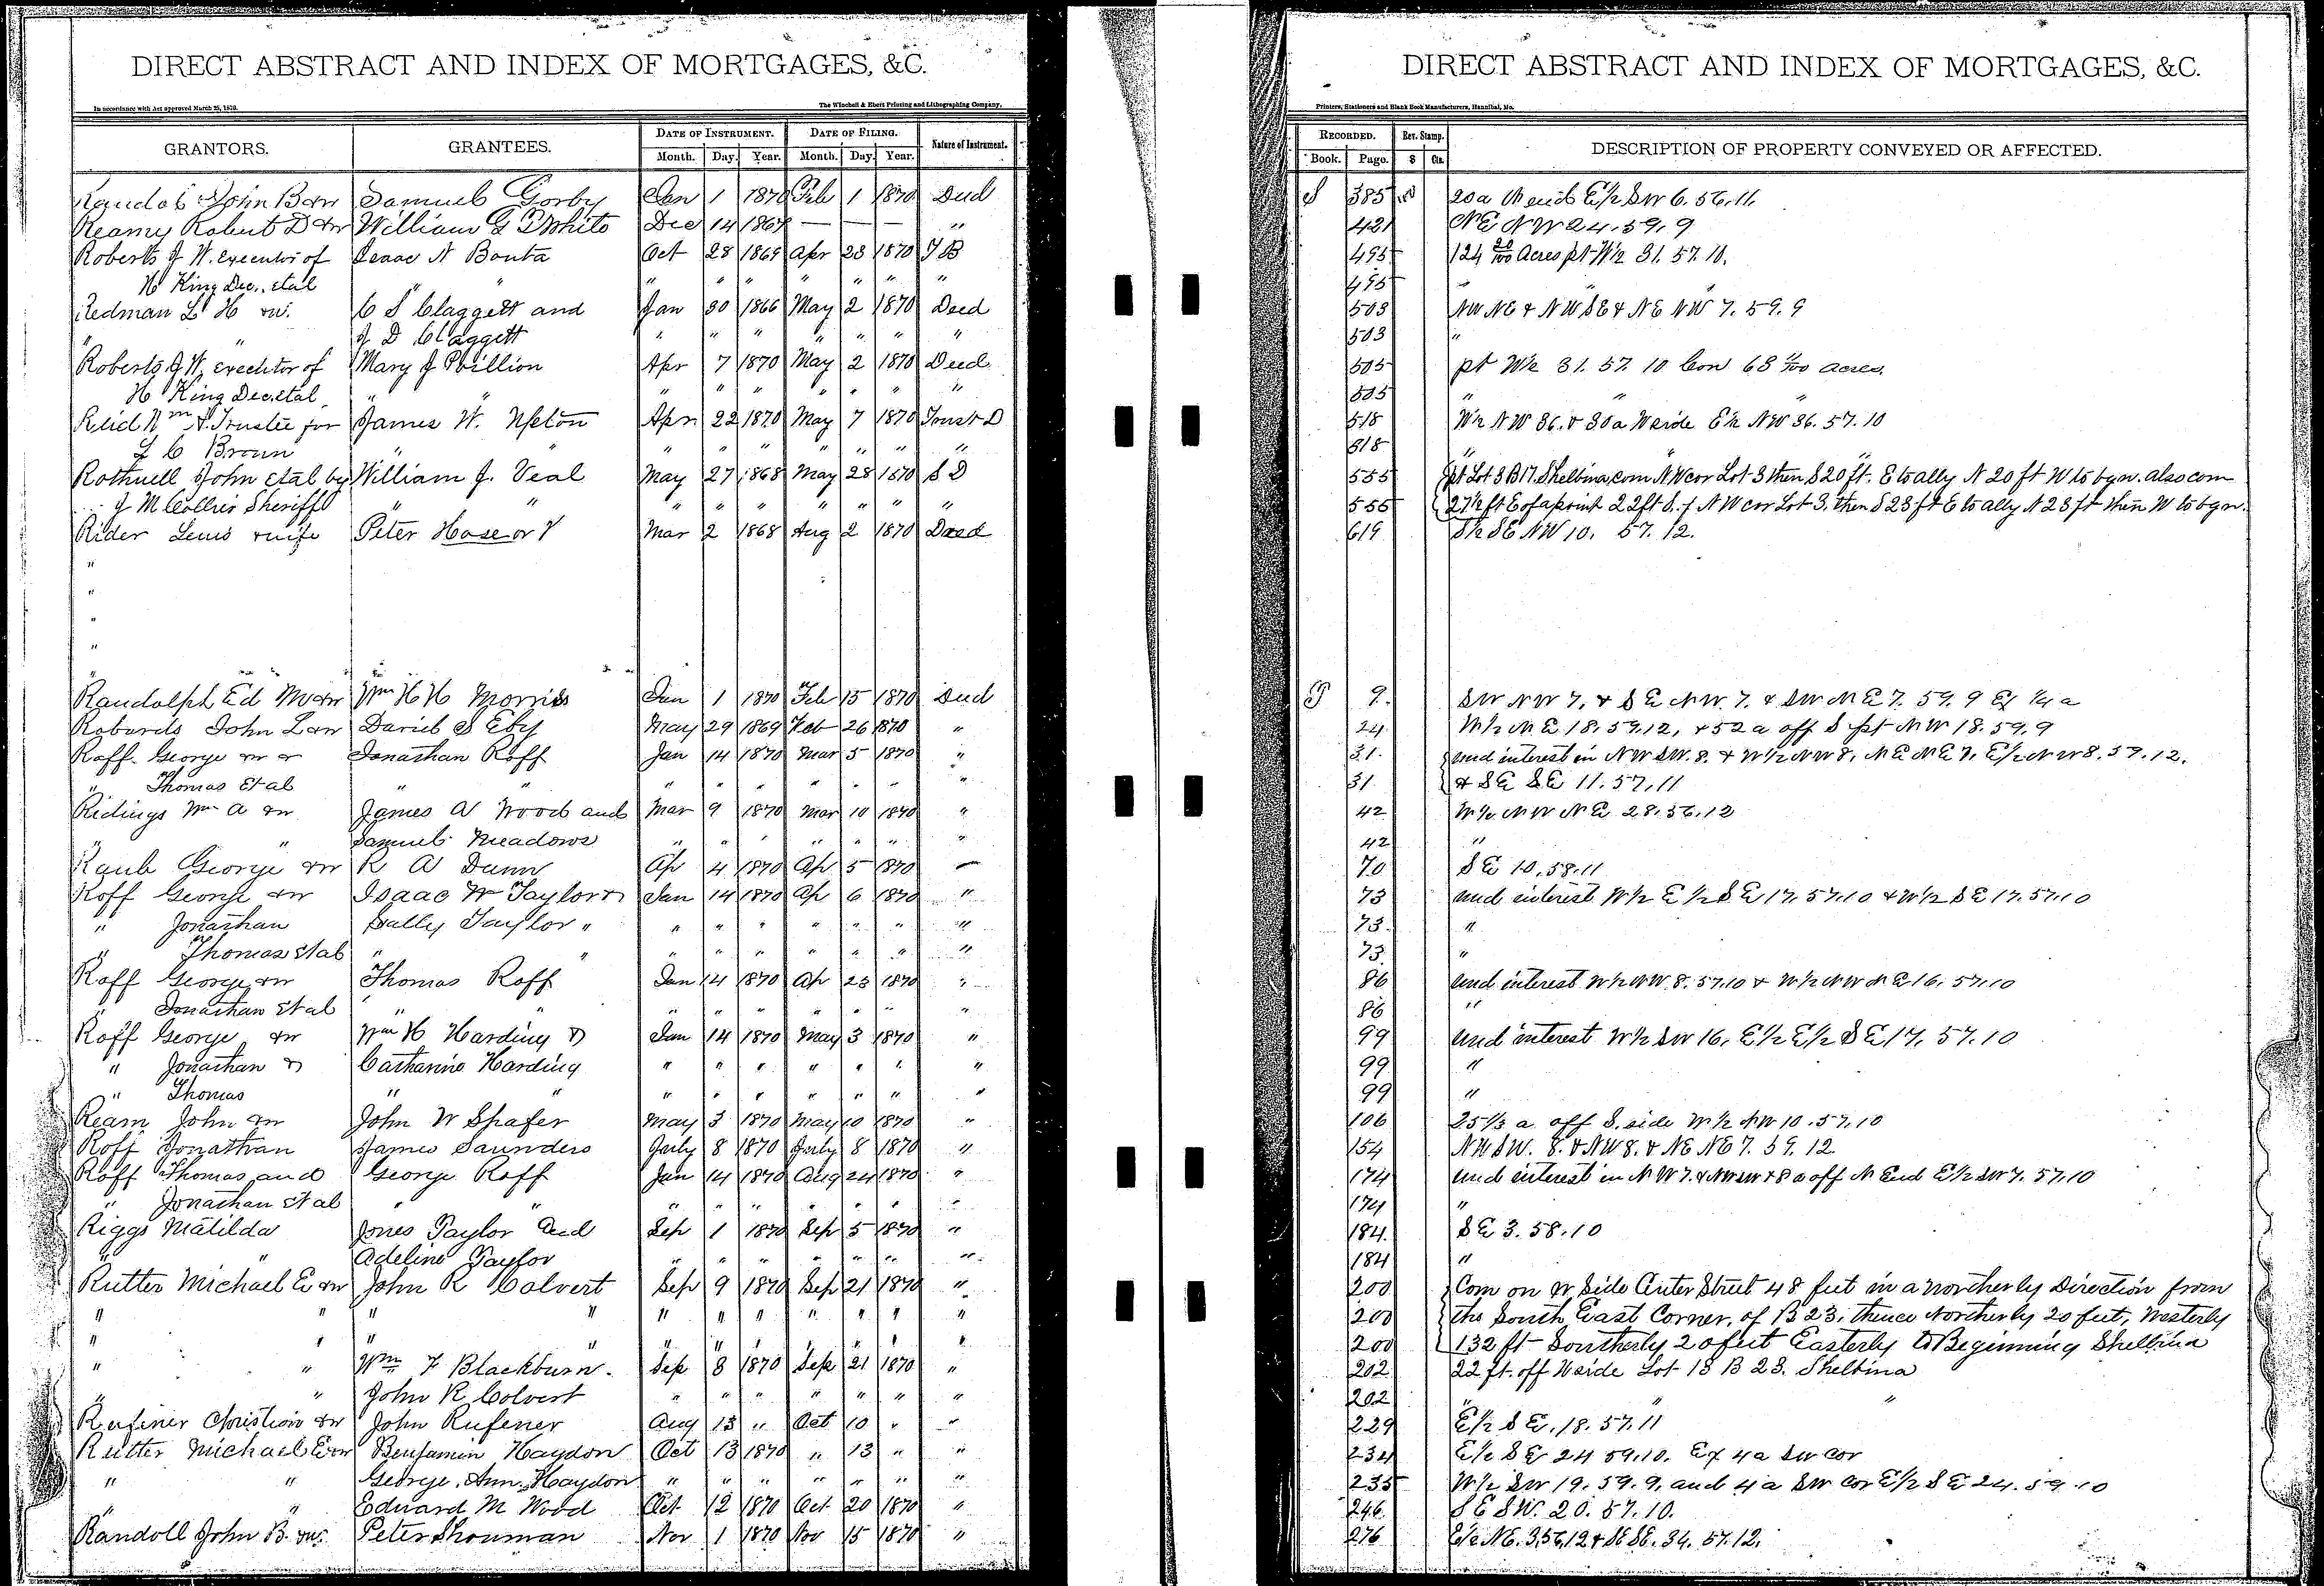 DIRECT ABSTRACT AND INDEX OF MORTGAGES, &C.
In accordance with Act approved March 25, 1870. The Winchell & Ebert Printing and Lithographing Company,
GRANTORS. GRANTEES. DATE OF INSTRUMENT. DATE OF FILING. Nature of Instrument.
Month. Day. Year. Month. Day. Year.
John B &w Samuel Gorby Jan 1 1870 Feb 1 1870 Deed
Reamy Robert D &w William G White Dec 14 1867 — — "
Roberts J W. executor of Isaac N Bonta Oct 28 1869 Apr 28 1870 T B
H King Dec., etal " " " " " " " "
Redman L H &w. C S Claggett and Jan 30 1866 May 2 1870 Deed
" " J D Claggett " " " " " " "
Roberts J W. executor of Mary J Phillion Apr 7 1870 May 2 1870 Deed
H King Dec. etal " " " " " " " "
Reid Wm A. Trustee for James W. Upton Apr 22 1870 May 7 1870 Trust D
L C Brown " " " " " " " "
Rothwell John etal by William J. Veal May 27 1868 May 28 1870 S D
J M Collier Sheriff " " " " " " " " "
Rider Lewis &wife Peter Hase or Y Mar 2 1868 Aug 2 1870 Deed
"
"
"
"
"
Randolph Ed M &w Wm H H Morris Jan 1 1870 Feb 15 1870 Deed
Robards John L &w David S Eby May 29 1869 Feb 26 1870 "
Roff. George &w & Jonathan Roff Jan 14 1870 Mar 5 1870 "
" Thomas et al " " " " " " " "
Ridings Wm A &w James A Wood and Mar 9 1870 Mar 10 1870 "
" Samuel Meadows " " " " " " "
Raub George &w R A Dunn Ap 4 1870 Ap 5 1870 —
Roff George &w Isaac W Taylor & Jan 14 1870 Ap 6 1870 "
" Jonathan Sally Taylor " " " " " " " "
" Thomas etal " " " " " " " " "
Roff George &w Thomas Roff Jan 14 1870 Ap 23 1870 "
" Jonathan etal " " " " " " " " "
Roff George &w Wm H Harding & Jan 14 1870 May 3 1870 "
" Jonathan & Catharine Harding " " " " " " "
" Thomas " " " " " " " " "
Ream John &w John W Shafer May 3 1870 May 10 1870 "
Roff Jonathan James Saunders July 8 1870 July 8 1870 "
Roff Thomas and George Roff Jan 14 1870 Aug 24 1870 "
" Jonathan et al " " " " " " " " "
Riggs Matilda Jones Taylor and Sep 1 1870 Sep 5 1870 "
" " Adeline Taylor " " " " " " "
Rutter Michael E &w John R Colvert Sep 9 1870 Sep 21 1870 "
" " " " " " " " " " "
" " " " " " " " " " "
" " Wm F Blackburn. Sep 8 1870 Sep 21 1870 "
" " John R Colvert " " " " " " "
Rufiner Christian &w John Rufener Aug 13 " Oct 10 " "
Rutter Michael E &w Benjamin Haydon Oct 13 1870 " 13 " "
" " George. Ann. Haydon " " " " " " "
" " Edward M Wood Oct 12 1870 Oct 20 1870 "
Randoll John B. &w. Peter Shouman Nov 1 1870 Nov 15 1870 "
DIRECT ABSTRACT AND INDEX OF MORTGAGES, &C.
Printers, Stationers and Blank Book Manufacturers, Hannibal, Mo.
RECORDED. Rev. Stamp. DESCRIPTION OF PROPERTY CONVEYED OR AFFECTED.
Book. Page. $ Cts.
S 385 20a W end E½ SW 6. 56. 11.
421 NE NW 24. 59. 9
495 124 20/100 Acres pt W½ 31. 57. 10.
495 "
503 NW NE & NW SE & NE NW 7. 59. 9
503 "
505 pt W½ 31. 57. 10 Con 68 acres.
505 "
518 W½ NW 36. & 30a W side E½ NW 36. 57. 10
518 "
555 pt Lot 3 B 17. Shelbina, com NW cor Lot 3 then S 20 ft. E to ally N 20 ft W to bgn. also com
555 27½ ft E of a point 22 ft S. of NW cor Lot 3. then S 23 ft E to ally N 23 ft then W to bgn.
619 S½ SE NW 10. 57. 12.
T 9. SW NW 7, & SE NW. 7. & SW NE 7. 59. 9 Ex ¼ a
24 W½ NE 18. 59. 12, & 52 a off S pt NW 18. 59. 9
31. und interest in NW SW. 8. & W½ NW 8, NE NE 7, E½ NW 8. 57. 12.
31 & SE SE 11. 57. 11
42 W½ NW NE 28. 56. 12
42 "
70 SE 10. 58. 11
73 und interest W½ E½ SE 17. 57. 10 & W½ SE 17. 57. 10
73. "
73. "
86 und interest W½ NW 8. 57. 10 & W½ NW NE 16. 57. 10
86 "
99 und interest W½ SW 16, E½ E½ SE 17, 57. 10
99 "
99 "
106 25⅓ a off S. side W½ NW 10. 57. 10
154 NW SW. 8. & NW 8. & NE NE 7. 59. 12
174 und interest in NW 7. & NW SW & 8 a off N End E½ SW 7. 57. 10
174 "
184. SE 3. 58. 10
184 "
200 Com on W Side Center Street 48 feet in a northerly Direction from
200 the South East Corner, of B 23, thence Northerly 20 feet, Westerly
200 132 ft Southerly 20 feet Easterly to Beginning Shelbina
202 22 ft. off W side Lot 13 B 23. Shelbina
202 "
229 E½ SE. 18. 57. 11
234 E½ SE 24 59. 10. Ex 4a SW cor
235 W½ SW 19. 59. 9, and 4a SW cor E½ SE 24. 59. 10
246 SE SW. 20. 57. 10.
276 E½ NE. 3, 56, 12 & SE SE. 34. 57. 12.